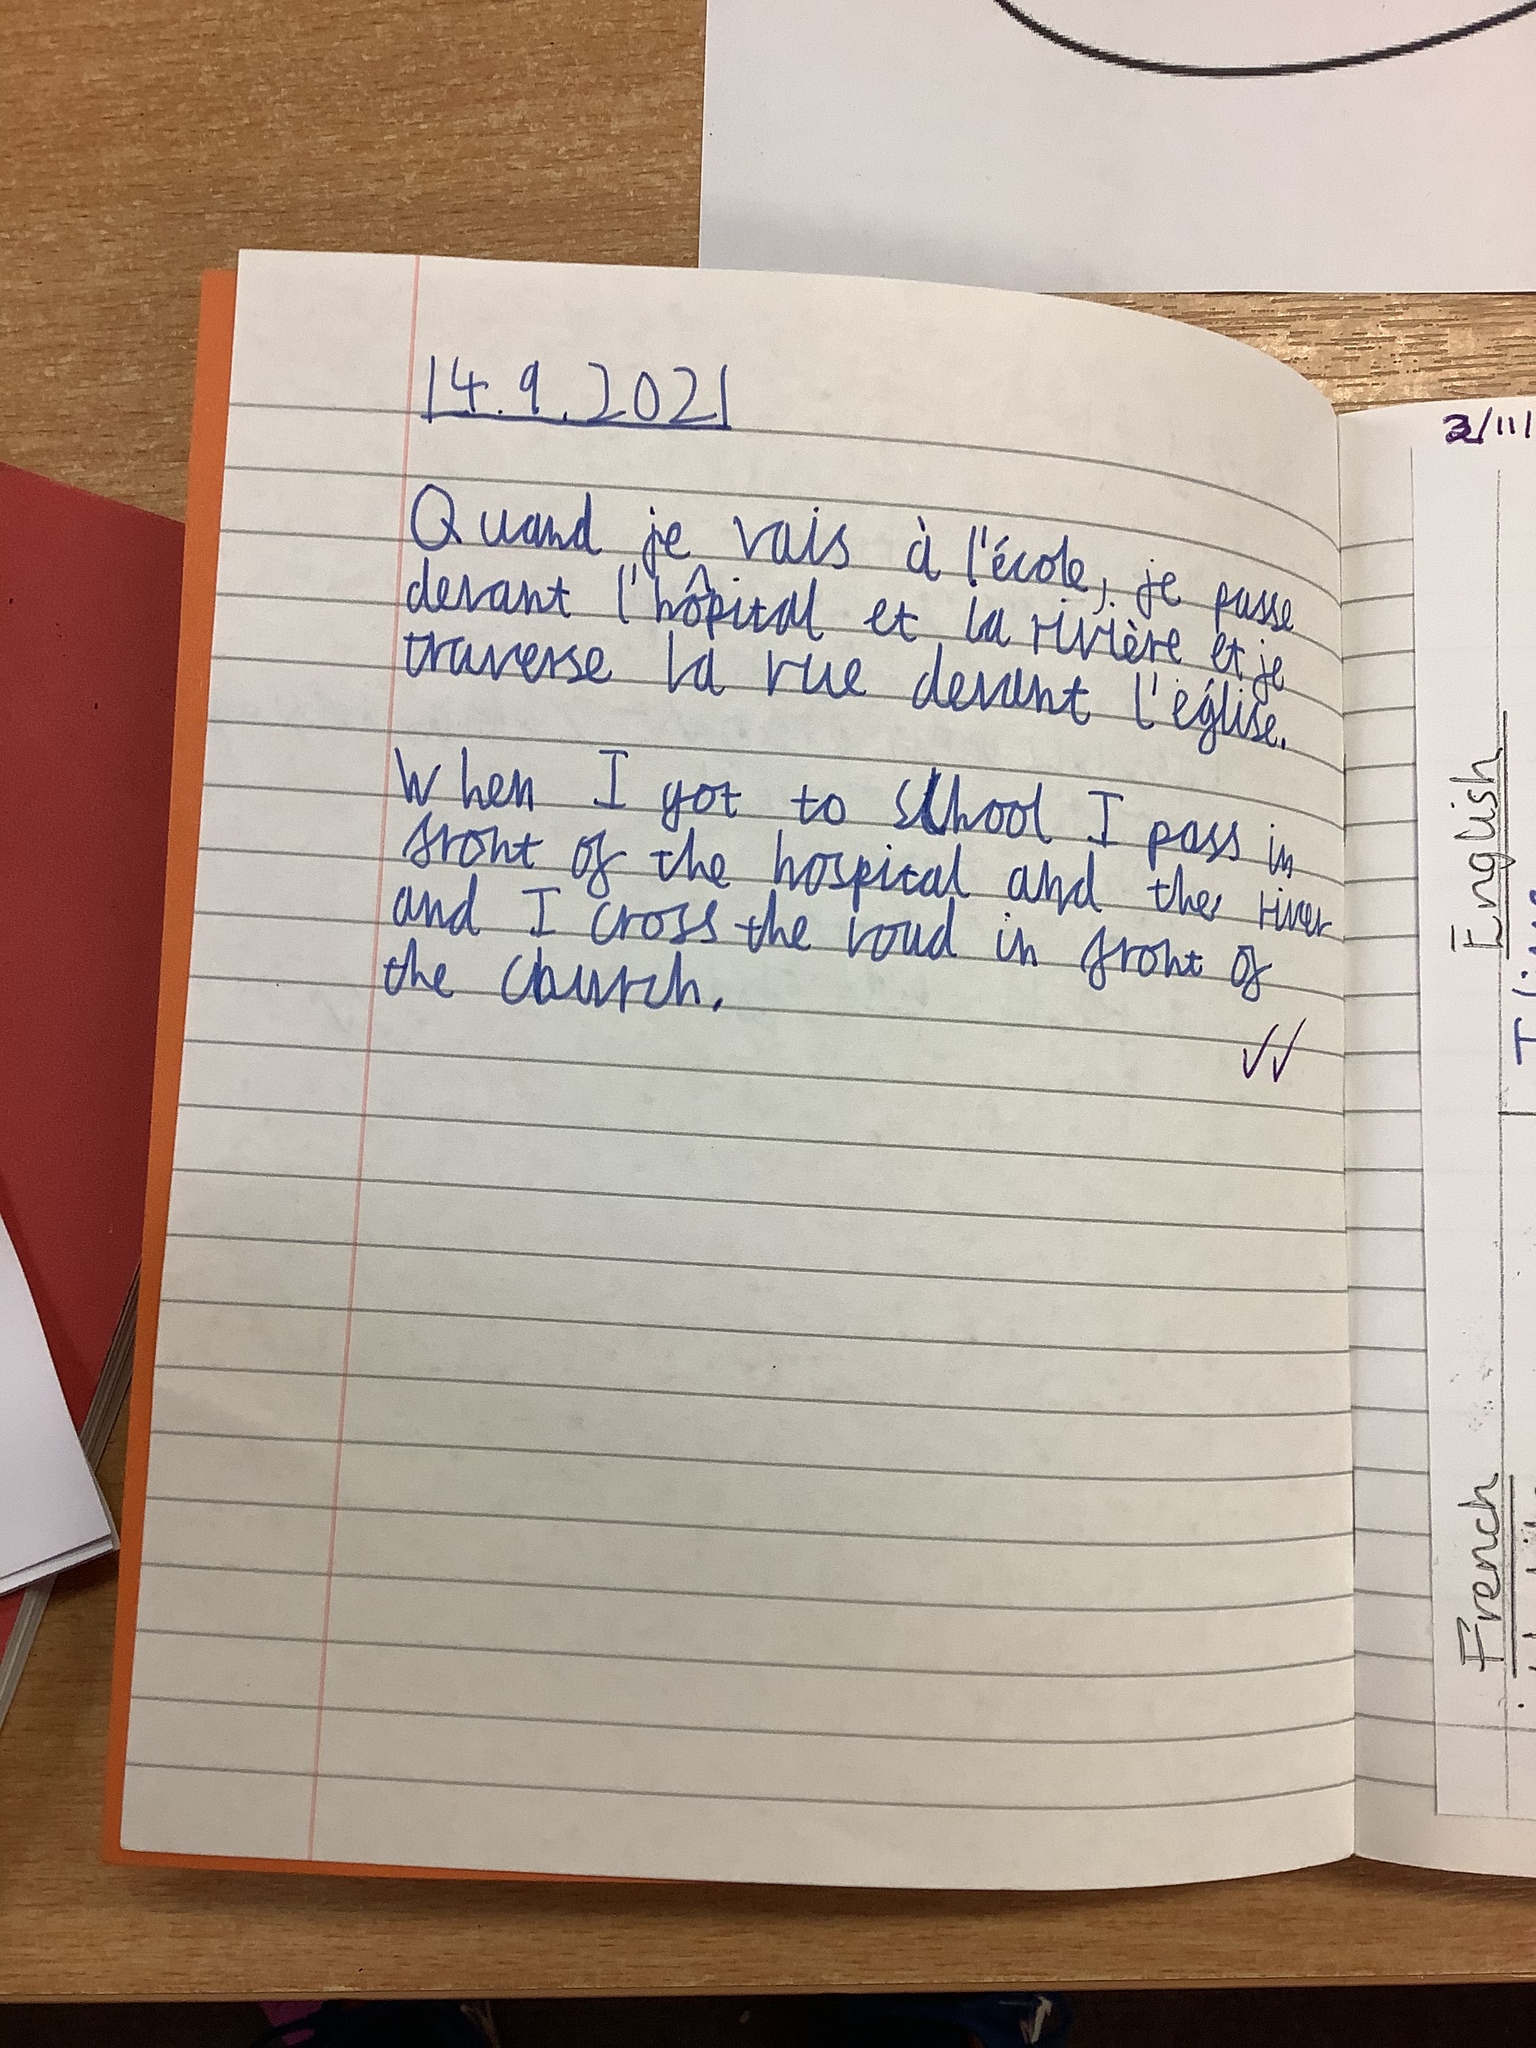 14.9.2021
Quand je vais à l'école, je passe
devant l'hôpital et la rivière et je
traverse la rue devant l'église.
When I got to school I pass in
front of the hospital and the river
and I cross the road in front of
the church.
3/11/
English
French